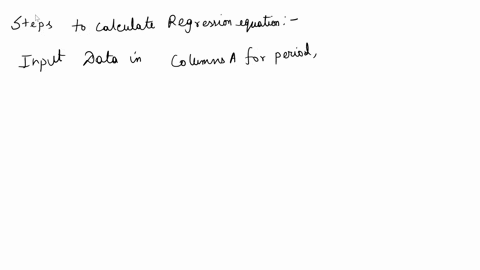 Steps to calculate Regression equation:-
Input Data in Columns A for period,